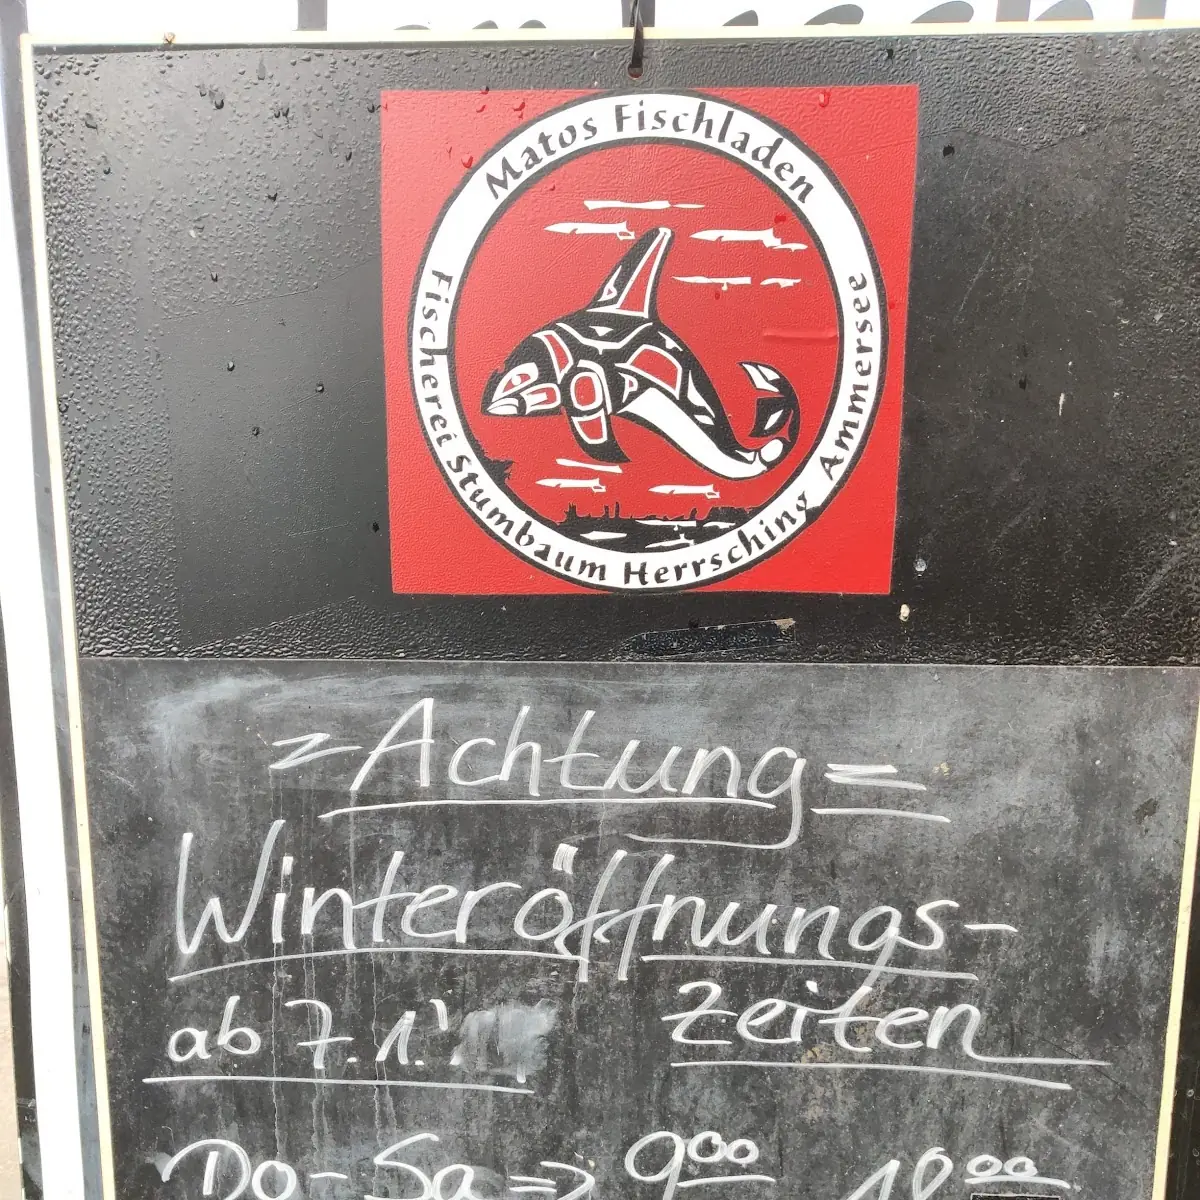 Matos Fischladen
Fischerei Stumbaum Herrsching Ammersee
=Achtung=
Winteröffnungs-
zeiten
ab 7.1.
Do-Sa => 9⁰⁰ 18⁰⁰